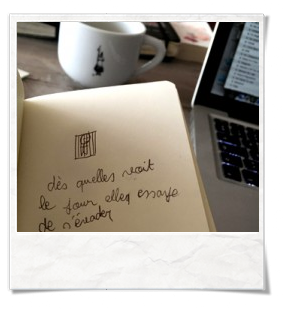 dès quelles voit
le jour elles essaye
de s'évader